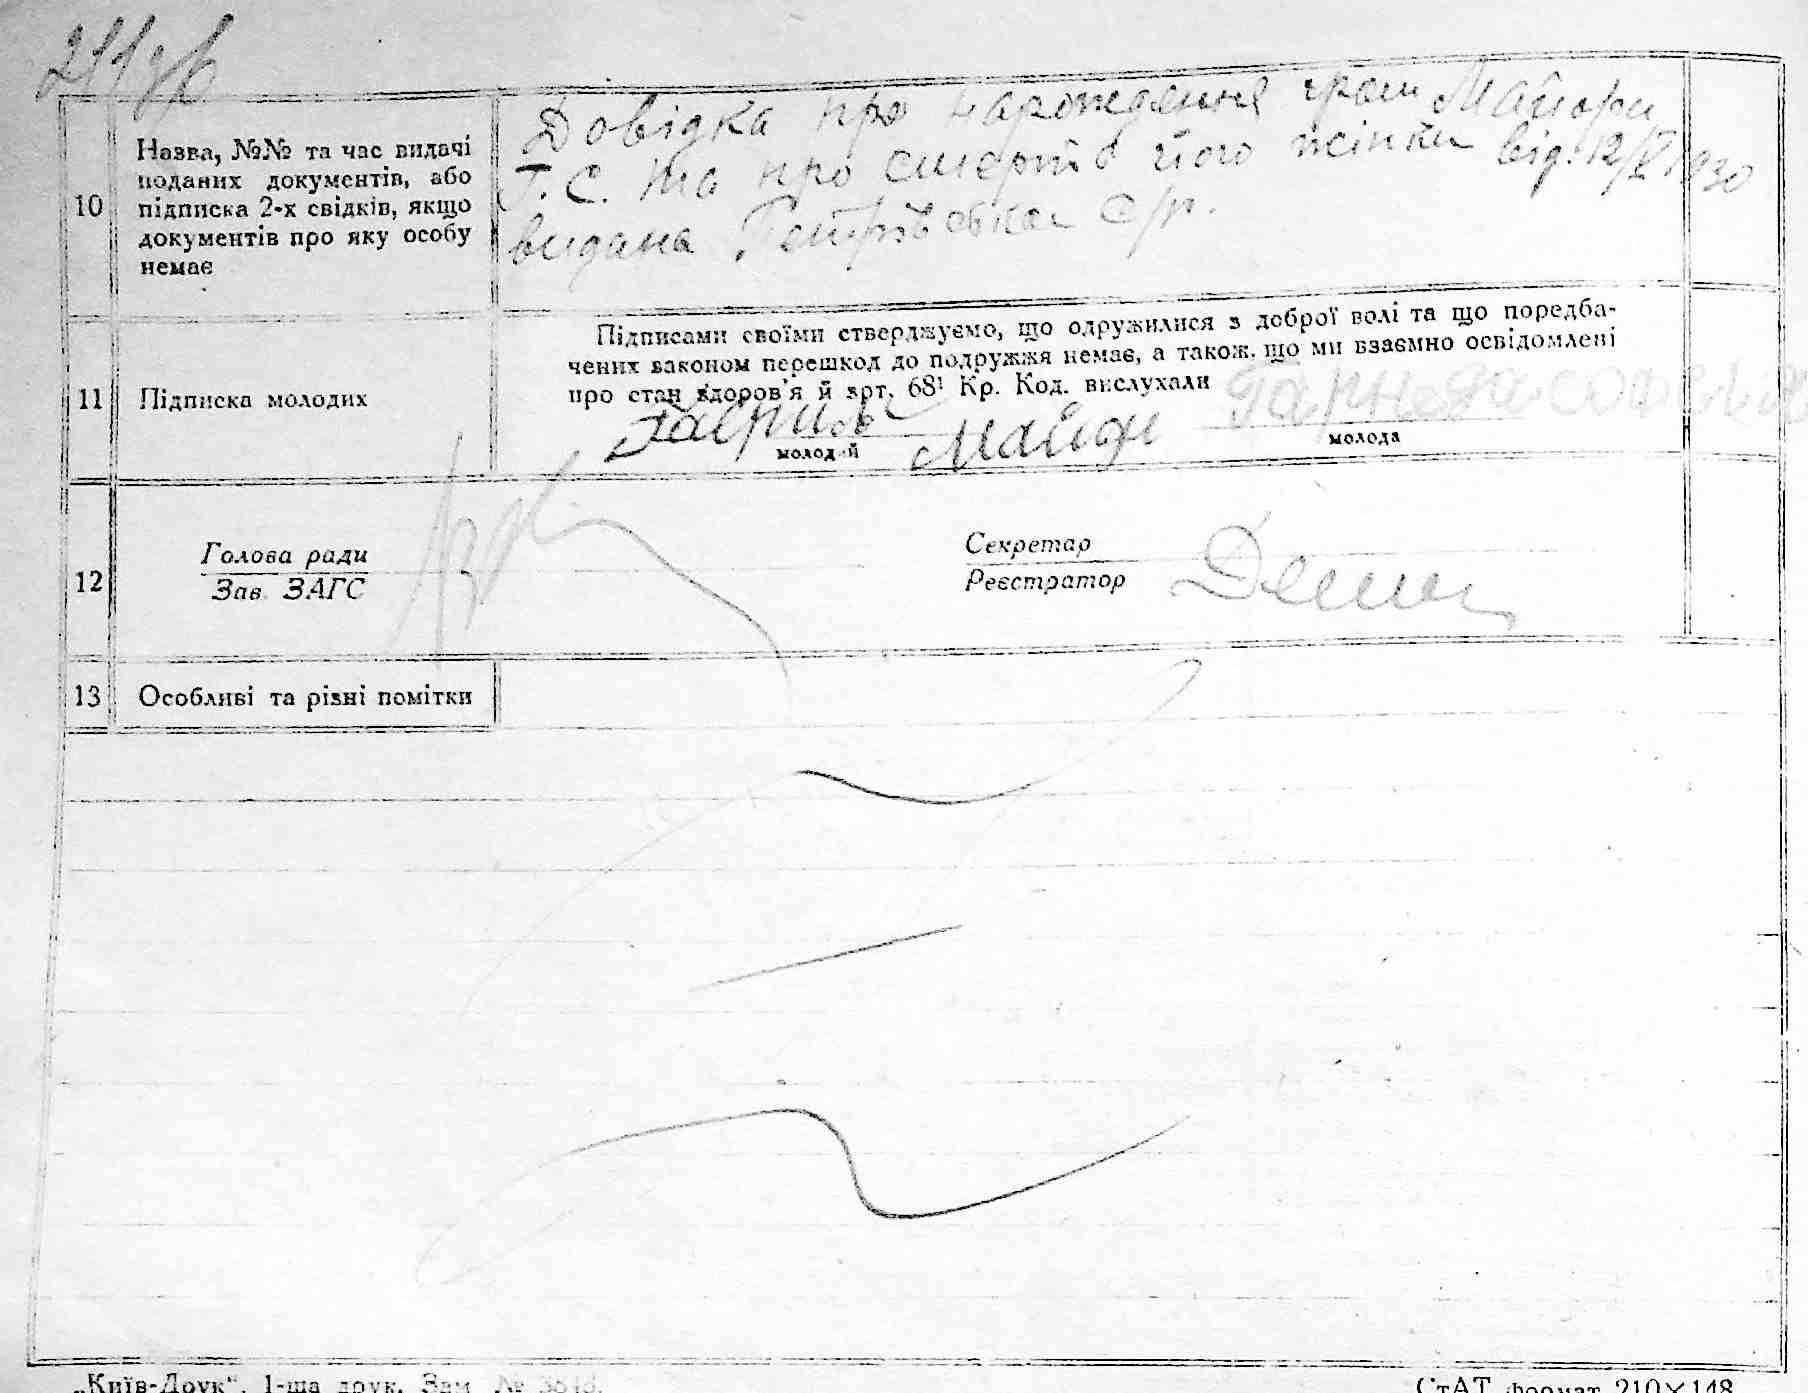 10
Назва, №№ та час видачі
поданих документів, або
підписка 2-х свідків, якщо
документів про яку особу
немає
Довідка про нарождення гром Майори
Г. С. та про смерть його жінки від. 12/V 1930
видана Петрівська с/р.
11
Підписка молодих
Підписами своїми стверджуємо, що одружилися з доброї волі та що поредба-
чених законом перешкод до подружжя немає, а також, що ми взаємно освідомлені
про стан здоров'я й арт. 68¹ Кр. Код. вислухали
молодий
молода
12
Голова ради
Зав. ЗАГС
Секретар
Реєстратор
13
Особливі та різні помітки
„Київ-Друк“. 1-ша друк. Зам №
СтАТ формат 210×148